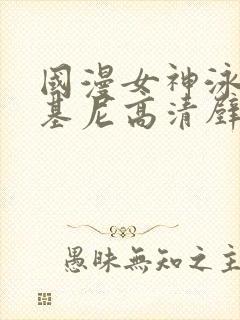 國漫女神泳
基尼高清壁
愚昧無知之主